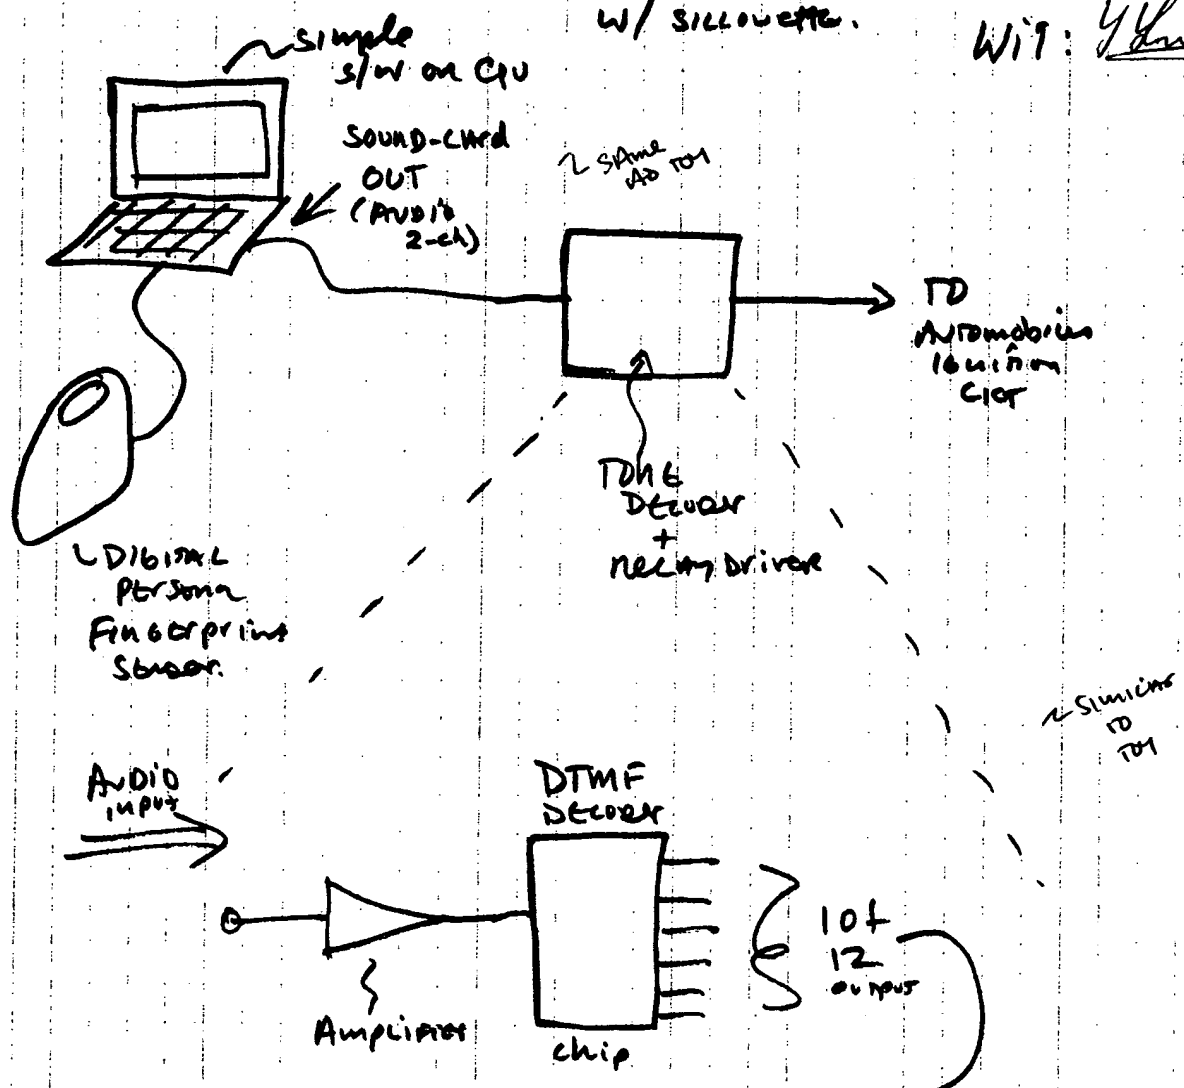 w/ SILLOUETTE.
WIT:
simple
s/w on CPU
SOUND-CARD
OUT
(AUDIO
2-ch)
~ SAME
AS TOY
TO
AUTOMOBILE
IGNITION
CKT
TONE
DECODER
+
RELAY DRIVER
DIGITAL
Persona
FINGERPRINT
Sensor.
~ SIMILAR
TO
TOY
AUDIO
input
DTMF
DECODER
1 of
12
output
Amplifier
chip